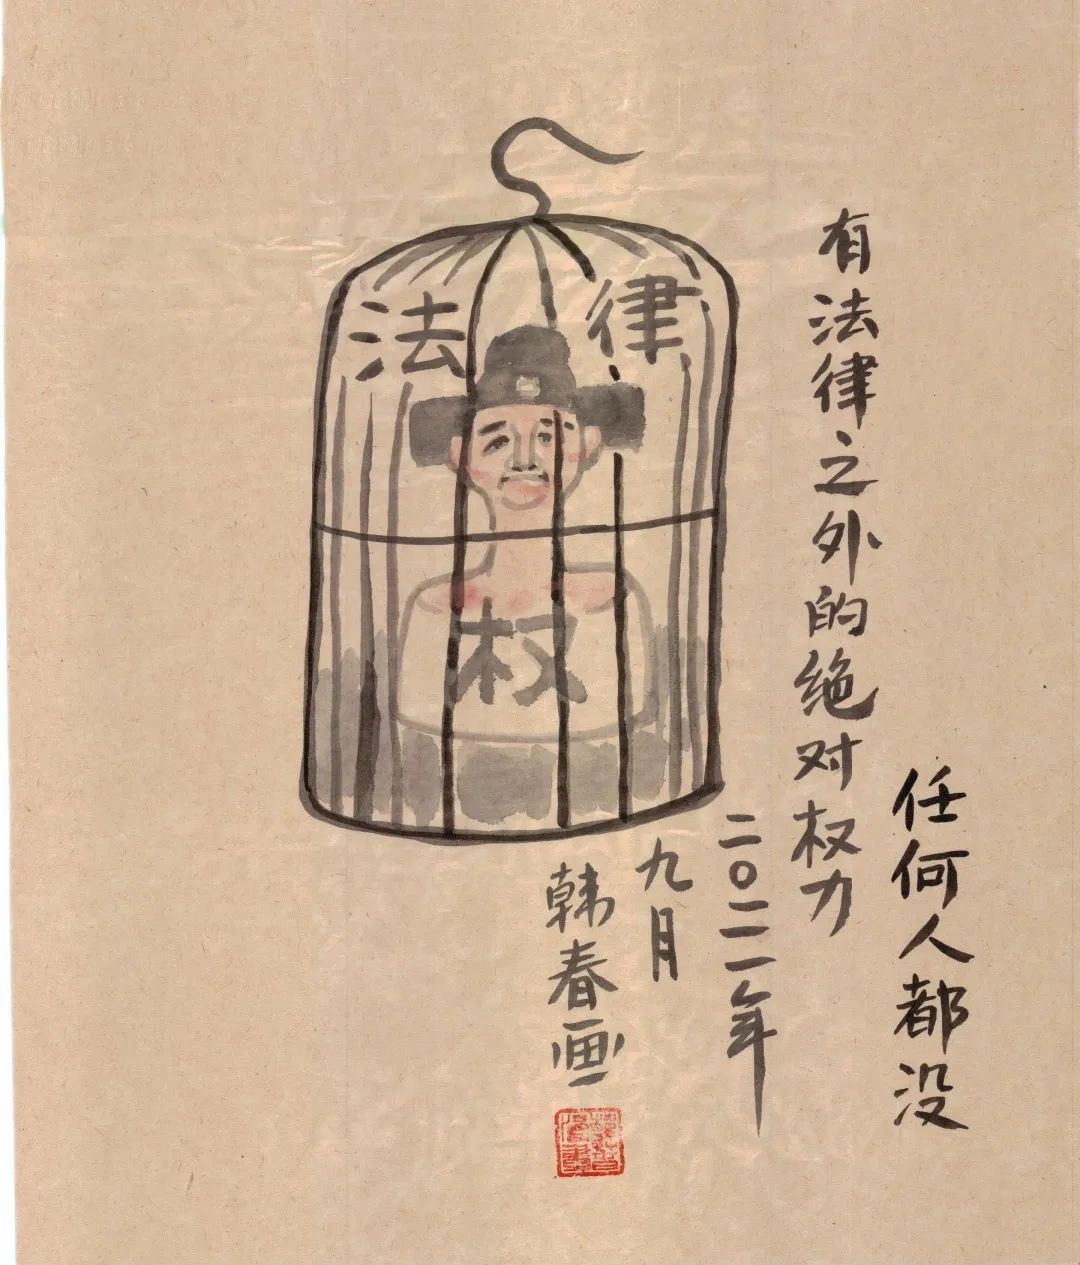 法律
权
任何人都没
有法律之外的绝对权力
二〇二一年
九月
韩春画